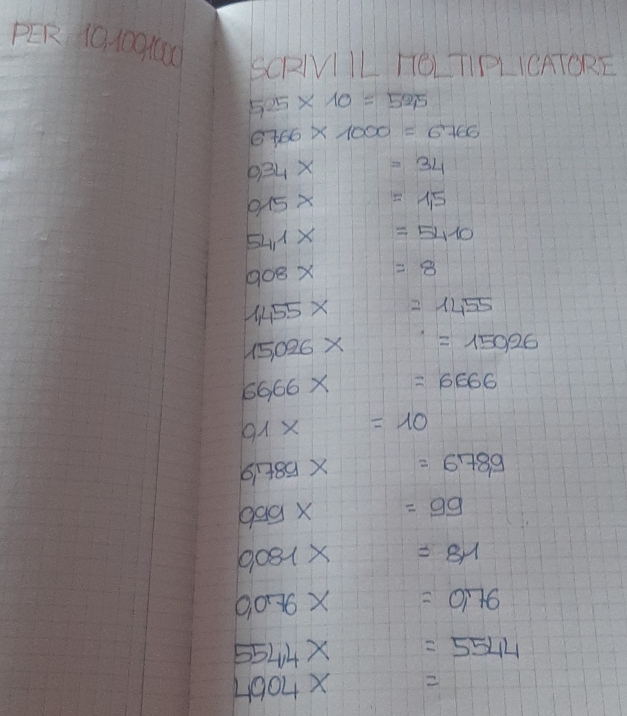 PER 10,100,1000
SCRIVI IL MOLTIPLICATORE
5,25 x 10 = 52,5
6,766 x 1000 = 6766
0,34 x = 34
0,15 x = 1,5
54,1 x = 5410
0,08 x = 8
1,455 x = 14,55
15,026 x = 150,26
66,66 x = 6666
0,1 x = 10
6,789 x = 678,9
0,99 x = 99
0,081 x = 8,1
0,076 x = 0,76
554,4 x = 5544
4,904 x =